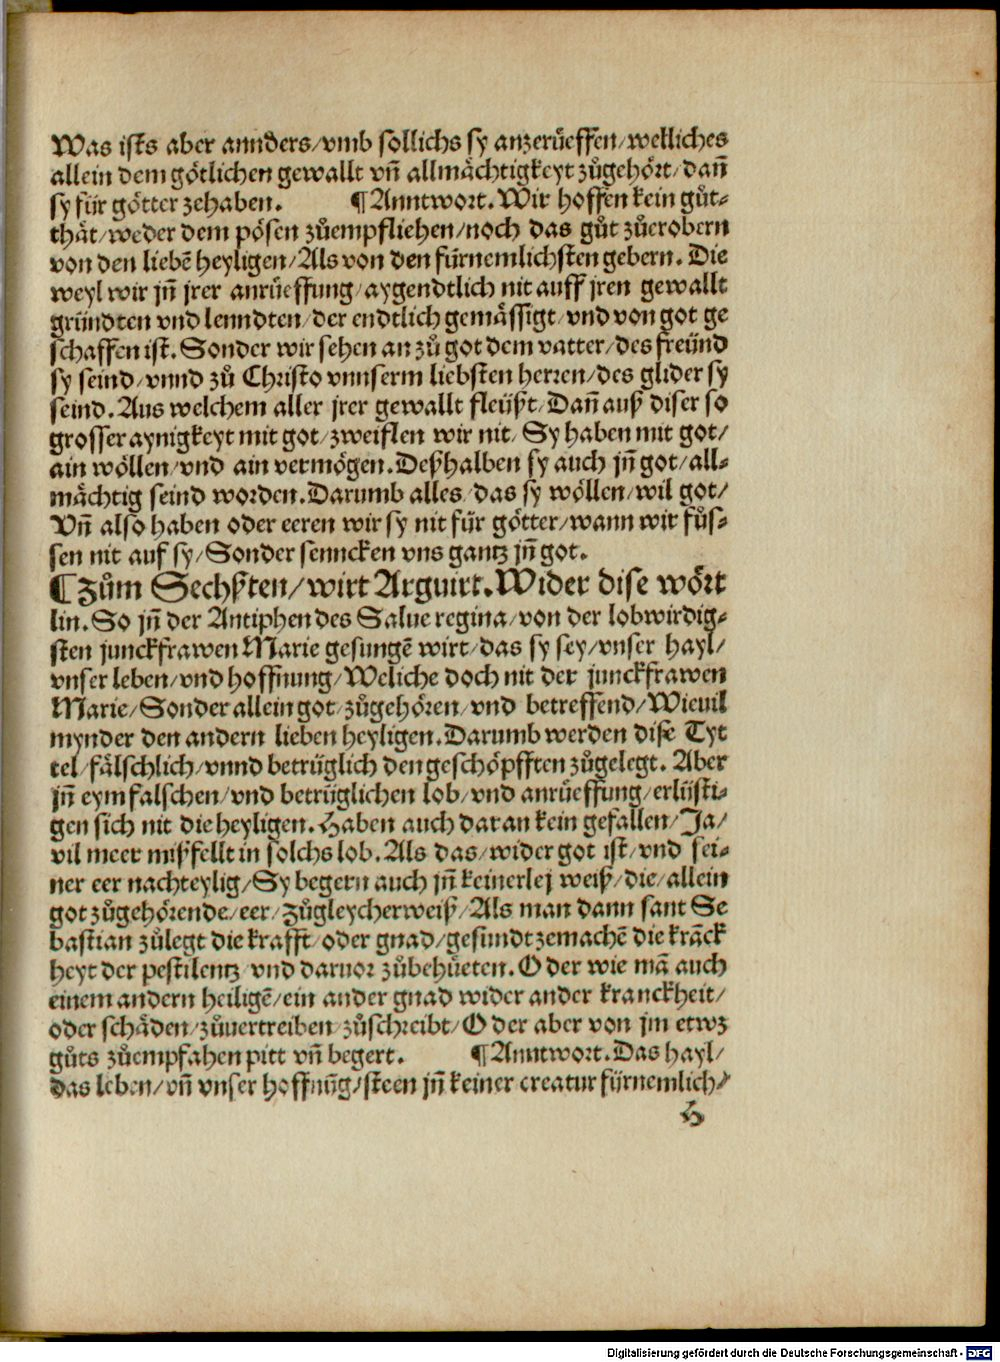 Was ists aber annders/vmb sollichs sy anzerüeffen/welliches
allein dem götlichen gewallt vñ allmächtigkeyt zůgehört/dañ
sy für götter zehaben. ¶Anntwort. Wir hoffen kein gůt⸗
thät/weder dem pösen zůempfliehen/noch das gůt zůerobern
von den liebē heyligen/Als von den fürnemlichsten gebern. Die
weyl wir jñ jrer anrüeffung/aygendtlich nit auff jren gewallt
gründten vnd lenndten/der endtlich gemässigt/vnd von got ge
schaffen ist. Sonder wir sehen an zů got dem vatter/des freünd
sy seind/vnnd zů Christo vnnserm liebsten herren/des glider sy
seind. Aus welchem aller jrer gewallt fleüßt/Dañ auß diser so
grosser aynigkeyt mit got/zweiflen wir nit/Sy haben mit got/
ain wöllen/vnd ain vermögen. Deßhalben sy auch jñ got/all⸗
mächtig seind worden. Darumb alles/das sy wöllen/wil got/
Vñ also haben oder eeren wir sy nit für götter/wann wir fůs⸗
sen nit auf sy/Sonder senncken vns gantz jñ got.
¶Zům Sechsten/wirt Arguirt. Wider dise wört
lin. So jñ der Antiphen des Salue regina/von der lobwirdig⸗
sten junckfrawen Marie gesungē wirt/das sy sey/vnser hayl/
vnser leben/vnd hoffnung/Weliche doch nit der junckfrawen
Marie/Sonder allein got/zůgehören/vnd betreffend/Wieuil
mynder den andern lieben heyligen. Darumb werden dise Tyt
tel/fälschlich/vnnd betrüglich den geschöpfften zůgelegt. Aber
jñ eym falschen/vnd betrüglichen lob/vnd anrüeffung/erlüsti⸗
gen sich nit die heyligen. Haben auch daran kein gefallen/Ja/
vil meer mißfellt in solchs lob. Als das/wider got ist/vnd sei⸗
ner eer nachteylig/Sy begern auch jñ keinerlej weiß/die/allein
got zůgehörende/eer/Zůgleycherweiß/Als man dann sant Se
bastian zůlegt die krafft/oder gnad/gesundt zemachē die krāck
heyt der pestilentz vnd daruor zůbehüeten. Oder wie mā auch
einem andern heiligē/ein ander gnad wider ander kranckheit/
oder schäden/zůuertreiben/zůschreibt/Oder aber von jm etwz
gůts zůempfahen pitt vñ begert. ¶Anntwort. Das hayl/
das leben/vñ vnser hoffnūg/steen jñ keiner creatur fürnemlich/
H
Digitalisierung gefördert durch die Deutsche Forschungsgemeinschaft - DFG